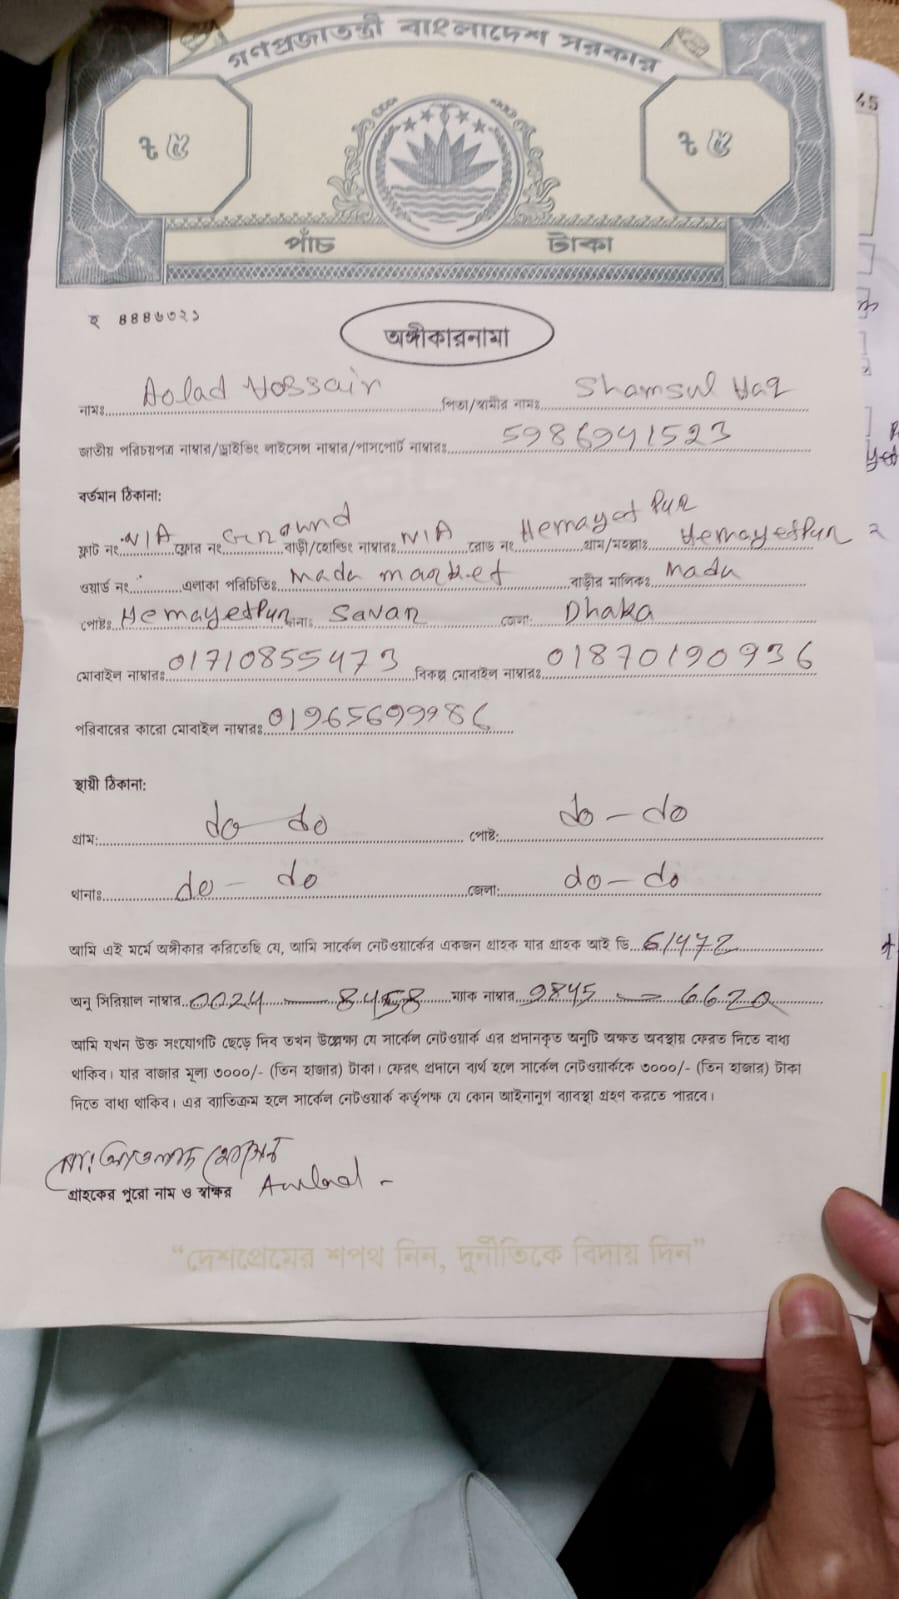 গণপ্রজাতন্ত্রী বাংলাদেশ সরকার
৳ ৫ ৳ ৫
পাঁচ টাকা
হ ৪৪৪৬৩২১
অঙ্গীকারনামা
নামঃ Aolad Hossain পিতা/স্বামীর নামঃ Shamsul Haq
জাতীয় পরিচয়পত্র নাম্বার/ড্রাইভিং লাইসেন্স নাম্বার/পাসপোর্ট নাম্বারঃ 5986941523
বর্তমান ঠিকানা:
ফ্লাট নং N/A ফ্লোর নং Ground বাড়ী/হোল্ডিং নাম্বারঃ N/A রোড নং Hemayet Pur গ্রাম/মহল্লাঃ Hemayetpur
ওয়ার্ড নং: এলাকা পরিচিতিঃ Madu market বাড়ীর মালিকঃ Madu
পোষ্টঃ Hemayetpur থানাঃ Savar জেলা: Dhaka
মোবাইল নাম্বারঃ 01710855473 বিকল্প মোবাইল নাম্বারঃ 01870190936
পরিবারের কারো মোবাইল নাম্বারঃ
স্থায়ী ঠিকানা:
গ্রাম: do do পোষ্ট: do - do
থানাঃ do - do জেলা: do - do
আমি এই মর্মে অঙ্গীকার করিতেছি যে, আমি সার্কেল নেটওয়ার্কের একজন গ্রাহক যার গ্রাহক আই ডি 61472
অনু সিরিয়াল নাম্বার 0024 — 8458 ম্যাক নাম্বার 9845 — 6620
আমি যখন উক্ত সংযোগটি ছেড়ে দিব তখন উল্লেক্ষ্য যে সার্কেল নেটওয়ার্ক এর প্রদানকৃত অনুটি অক্ষত অবস্থায় ফেরত দিতে বাধ্য
থাকিব। যার বাজার মূল্য ৩০০০/- (তিন হাজার) টাকা। ফেরৎ প্রদানে ব্যর্থ হলে সার্কেল নেটওয়ার্ককে ৩০০০/- (তিন হাজার) টাকা
দিতে বাধ্য থাকিব। এর ব্যতিক্রম হলে সার্কেল নেটওয়ার্ক কর্তৃপক্ষ যে কোন আইনানুগ ব্যবস্থা গ্রহণ করতে পারবে।
মোঃ আওলাদ হোসেন
গ্রাহকের পুরো নাম ও স্বাক্ষর
"দেশপ্রেমের শপথ নিন, দুর্নীতিকে বিদায় দিন"